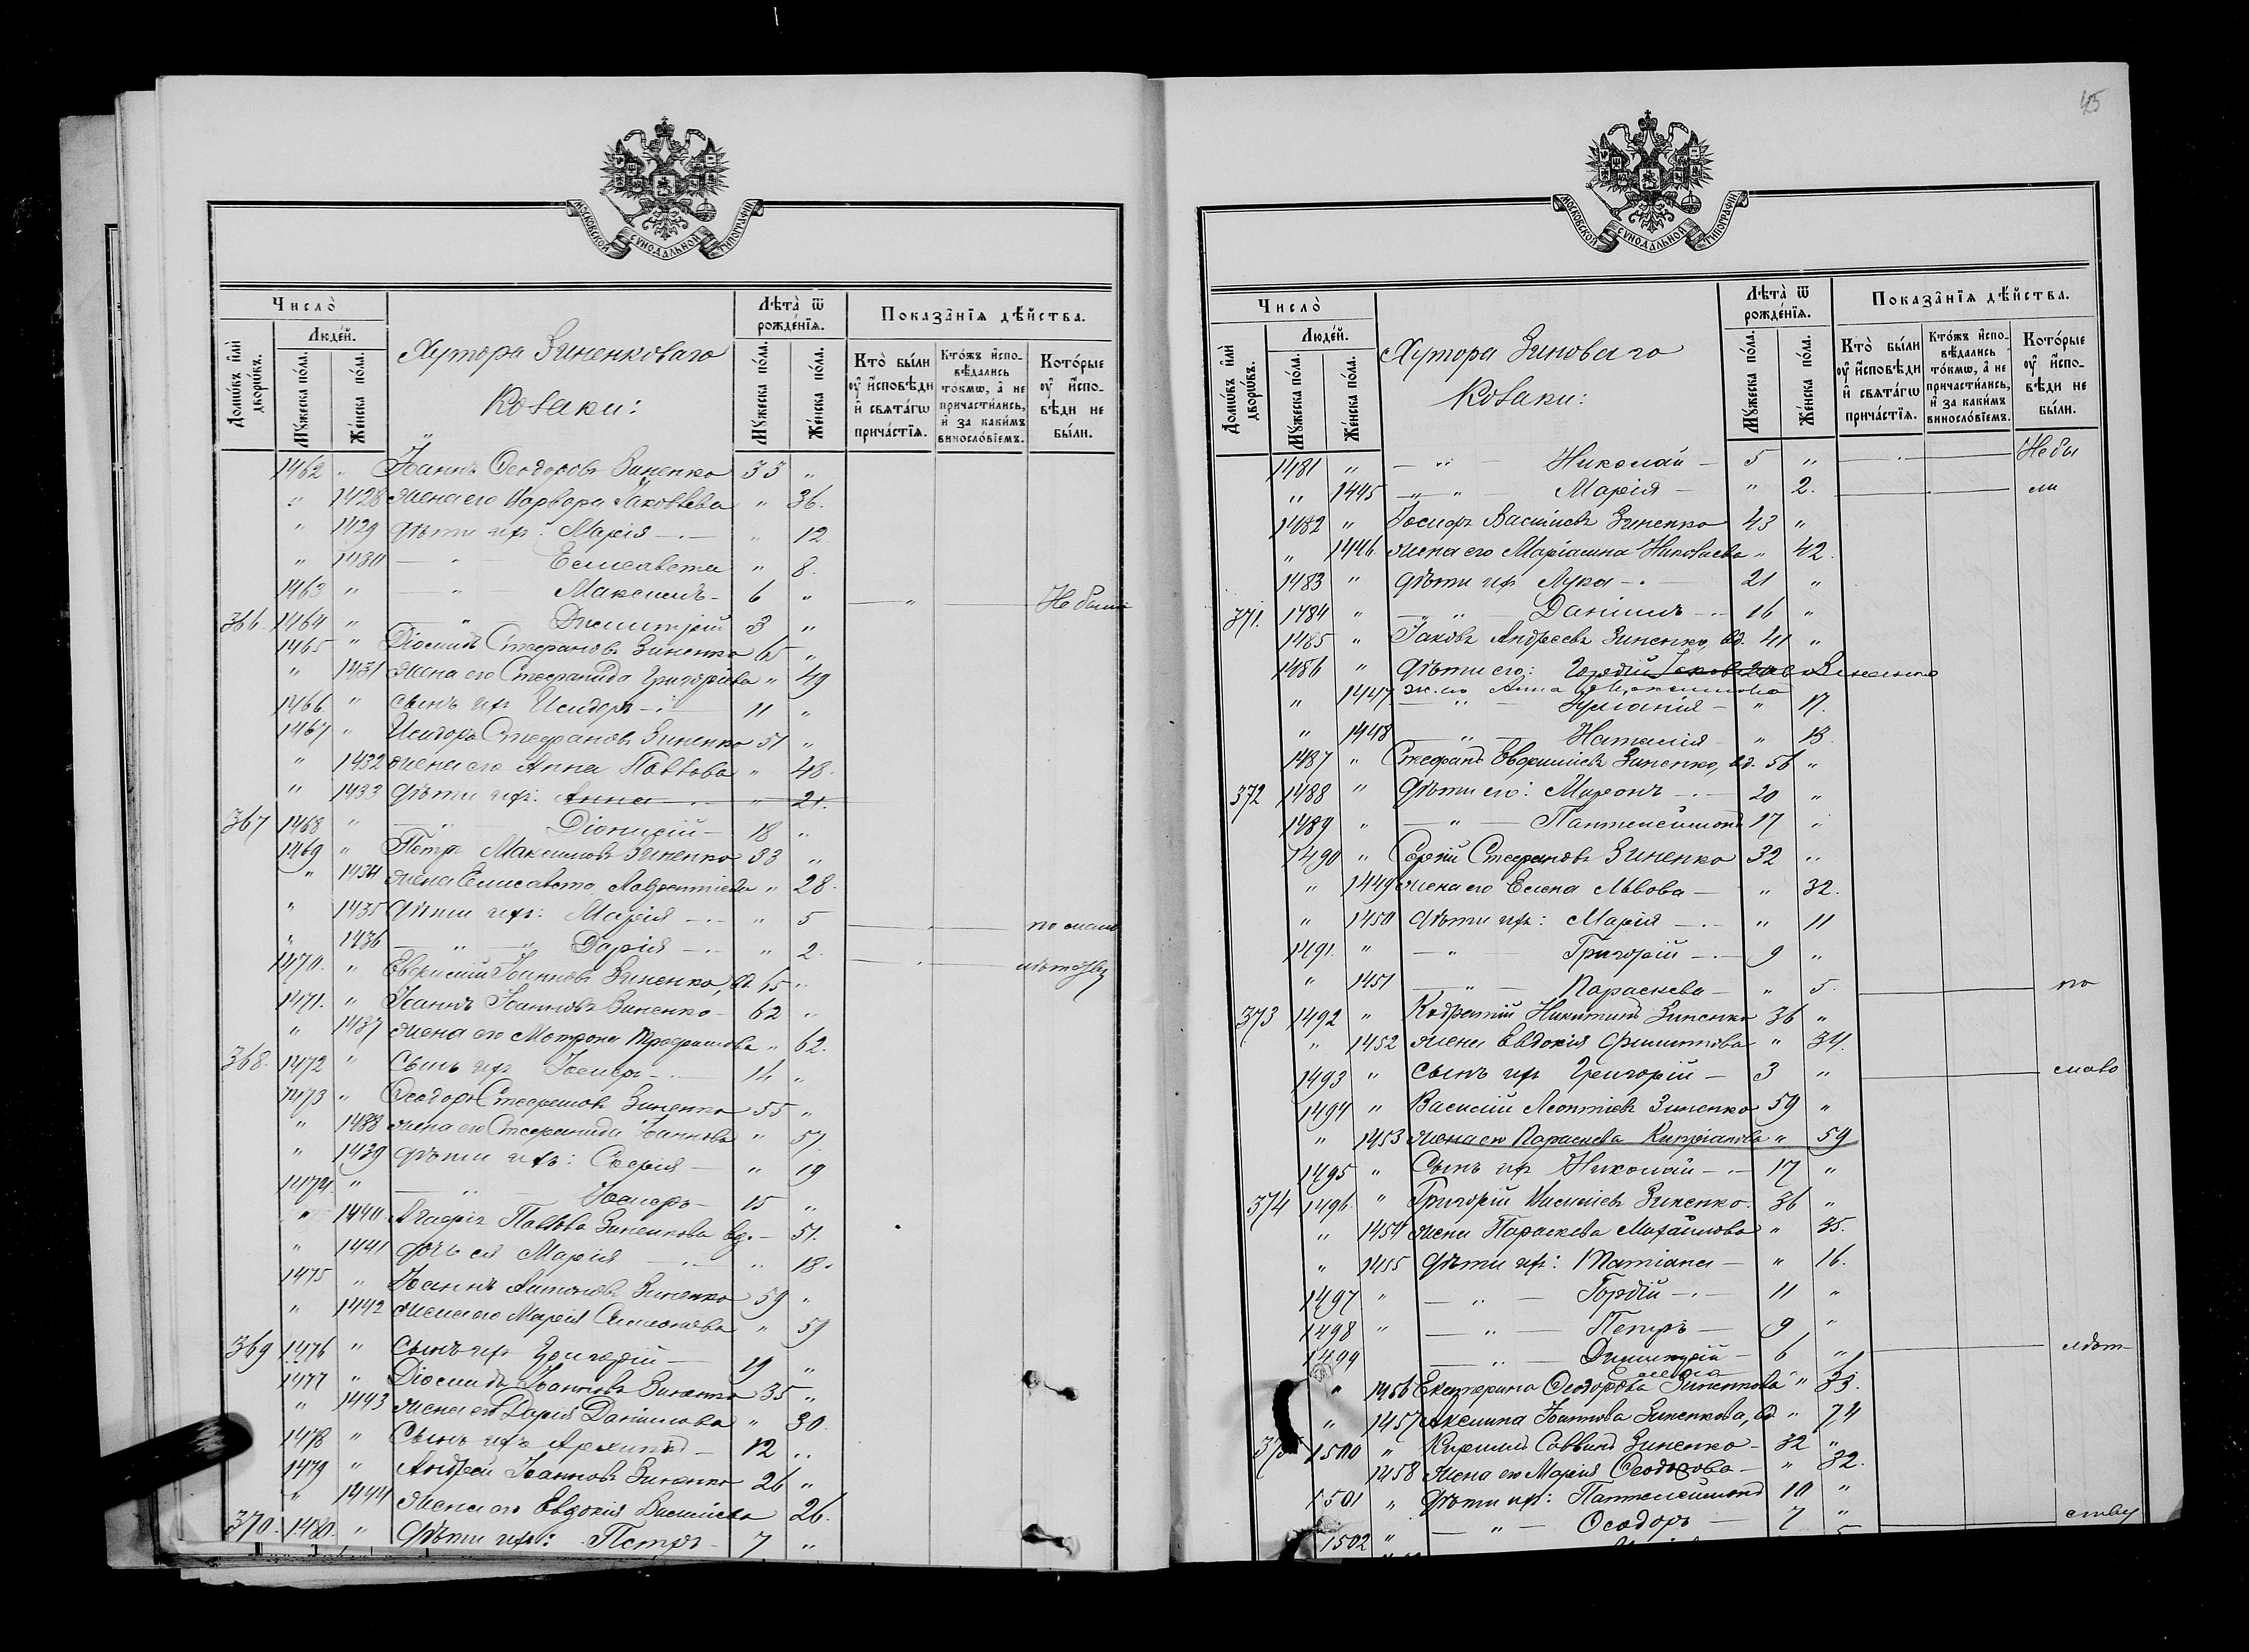 45
МОСКОВСКОЙ СѴНОДАЛЬНОЙ ТИПОГРАФІИ
Число̀
Людей.
Домѡвъ и҆лѝ дворѡвъ.
Мꙋжеска по́ла.
Же́нска по́ла.
Хутора Зиненковаго
Козаки:
Лѣта̀ ѿ рожде́нїѧ.
Мꙋжеска по́ла.
Же́нска по́ла.
Показа̑нїѧ дѣ́йства.
Кто̀ бы́ли оу҆ и҆сповѣди и҆ свѧта́гѡ прича́стїѧ.
Кто́жъ и҆спо-вѣдались то́кмѡ, а҆ не причасти́лись, и҆ за каки́мъ винословїемъ.
Кото́рые оу҆ и҆спо-вѣди не бы́ли.
1462 " Іоаннъ Ѳеодоровъ Зиненко 35 "
" 1428 жена его Варвара Іаковлева " 36.
" 1429 дѣти ихъ: Марія " 12
" 1430 — " — Елисавета " 8.
1463 " — " — Максимъ 6 " Не были
366. 1464 " — " — Димитрій 3 "
1465 " Діомидъ Стефановъ Зиненко 65 "
" 1431 жена его Стефанида Григоріева " 49
1466 " сынъ ихъ Исидоръ 11 "
1467 " Исидоръ Стефановъ Зиненко 51 "
" 1432 жена его Анна Павлова " 48.
" 1433 дѣти ихъ: Анна " 21.
367 1468 " — " — Діонисій 18 "
1469 " Петръ Максимовъ Зиненко 33 "
" 1434 жена Елисавета Лаврентіева " 28.
" 1435 дѣти ихъ: Марія " 5 по слаб
" 1436 — " — Дарія " 2.
1470. " Евфимій Іоанновъ Зиненко, вд. 65 "
1471. " Іоаннъ Іоанновъ Зиненко 62 "
" 1437 жена его Матрона Трофимова " 62.
368. 1472 " Сынъ ихъ Іосифъ 14 "
1473 " Ѳеодоръ Стефановъ Зиненко 55 "
" 1438 жена его Стефанида Іоаннова " 57.
" 1439 дѣти ихъ: Софія " 19
1474 " — " — Іосифъ 15 "
" 1440 Агафія Павлова Зиненкова вд. — 51.
" 1441 дочь ея Марія " 18.
1475 " Іоаннъ Антоновъ Зиненко 59 "
" 1442 жена его Марія Симеонова " 59
369 1476 " Сынъ ихъ Григорій 19 "
1477 " Діомидъ Іоанновъ Зиненко 35 "
" 1443 жена его Дарія Даніилова " 30.
1478 " Сынъ ихъ Архипъ 12 "
1479 " Андрей Іоанновъ Зиненко 26 "
" 1444 жена его Евдокія Василіева 26.
370. 1480. " Дѣти ихъ: Петръ 7 "
МОСКОВСКОЙ СѴНОДАЛЬНОЙ ТИПОГРАФІИ
Число̀
Людей.
Домѡвъ и҆лѝ дворѡвъ.
Мꙋжеска по́ла.
Же́нска по́ла.
Хутора Зиноваго
Козаки:
Лѣта̀ ѿ рожде́нїѧ.
Мꙋжеска по́ла.
Же́нска по́ла.
Показа̑нїѧ дѣ́йства.
Кто̀ бы́ли оу҆ и҆сповѣди и҆ свѧта́гѡ прича́стїѧ.
Кто́жъ и҆спо-вѣдались то́кмѡ, а҆ не причасти́лись, и҆ за каки́мъ винословїемъ.
Кото́рые оу҆ и҆спо-вѣди не бы́ли.
1481 " — " — Николай 5 " Не бы
" 1445 — " — Марія " 2. ли
1482 " Іосифъ Василіевъ Зиненко 43 "
" 1446 жена его Маріамна Николаева " 42.
1483 " дѣти ихъ Лука 21 "
371. 1484 " — " — Даніилъ 16 "
1485 " Іаковъ Андреевъ Зиненко, вд. 41 "
1486 " Дѣти его: Гордій Іаковлевъ 20 Зиненко
ж. его Анна
" 1447 — " — Іуліанія " 17.
" 1448 — " — Наталія " 13.
1487 " Стефанъ Евфиміевъ Зиненко, вд. 56 "
372 1488 " Дѣти его: Миронъ 20 "
1489 " — " — Пантелеимонъ 17 "
1490 " Сергій Стефановъ Зиненко 32 "
" 1449 жена его Елена Львова " 32.
" 1450 дѣти ихъ: Марія " 11
1491. " — " — Григорій 9 "
" 1451 — " — Параскева " 5. по
373 1492 " Кодратій Никитинъ Зиненко 36 "
" 1452 жена Евдокія Филиппова " 34.
1493 " сынъ ихъ Григорій 3 " слабо
1494 " Василій Леонтіевъ Зиненко 59 "
" 1453 жена его Параскева Кипріанова " 59
1495 " Сынъ ихъ Николай 17 "
374 1496. " Григорій Василіевъ Зиненко. 36 "
" 1454 жена Параскева Михайлова " 35.
" 1455 дѣти ихъ: Татіана " 16.
1497 " — " — Гордій 11 "
1498 " — " — Петръ 9 "
1499 — " — Димитрій 6 " лѣт
" 1456 Екатерина Ѳеодорова Зиненкова " 33.
" 1457 Акилина Іоаннова Зиненкова, вд " 74
375 1500 " Кириллъ Саввинъ Зиненко 32 "
1458 жена его Марія Ѳеодорова " 32.
1501 " дѣти ихъ: Пантелеимонъ 10 "
1502 " — " — Ѳеодоръ 7 " ству